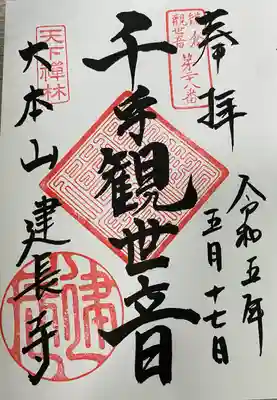 奉拝
鎌倉
観世音
第二十八番
令和五年
五月十七日
千手観世音
天下禅林
大本山建長寺